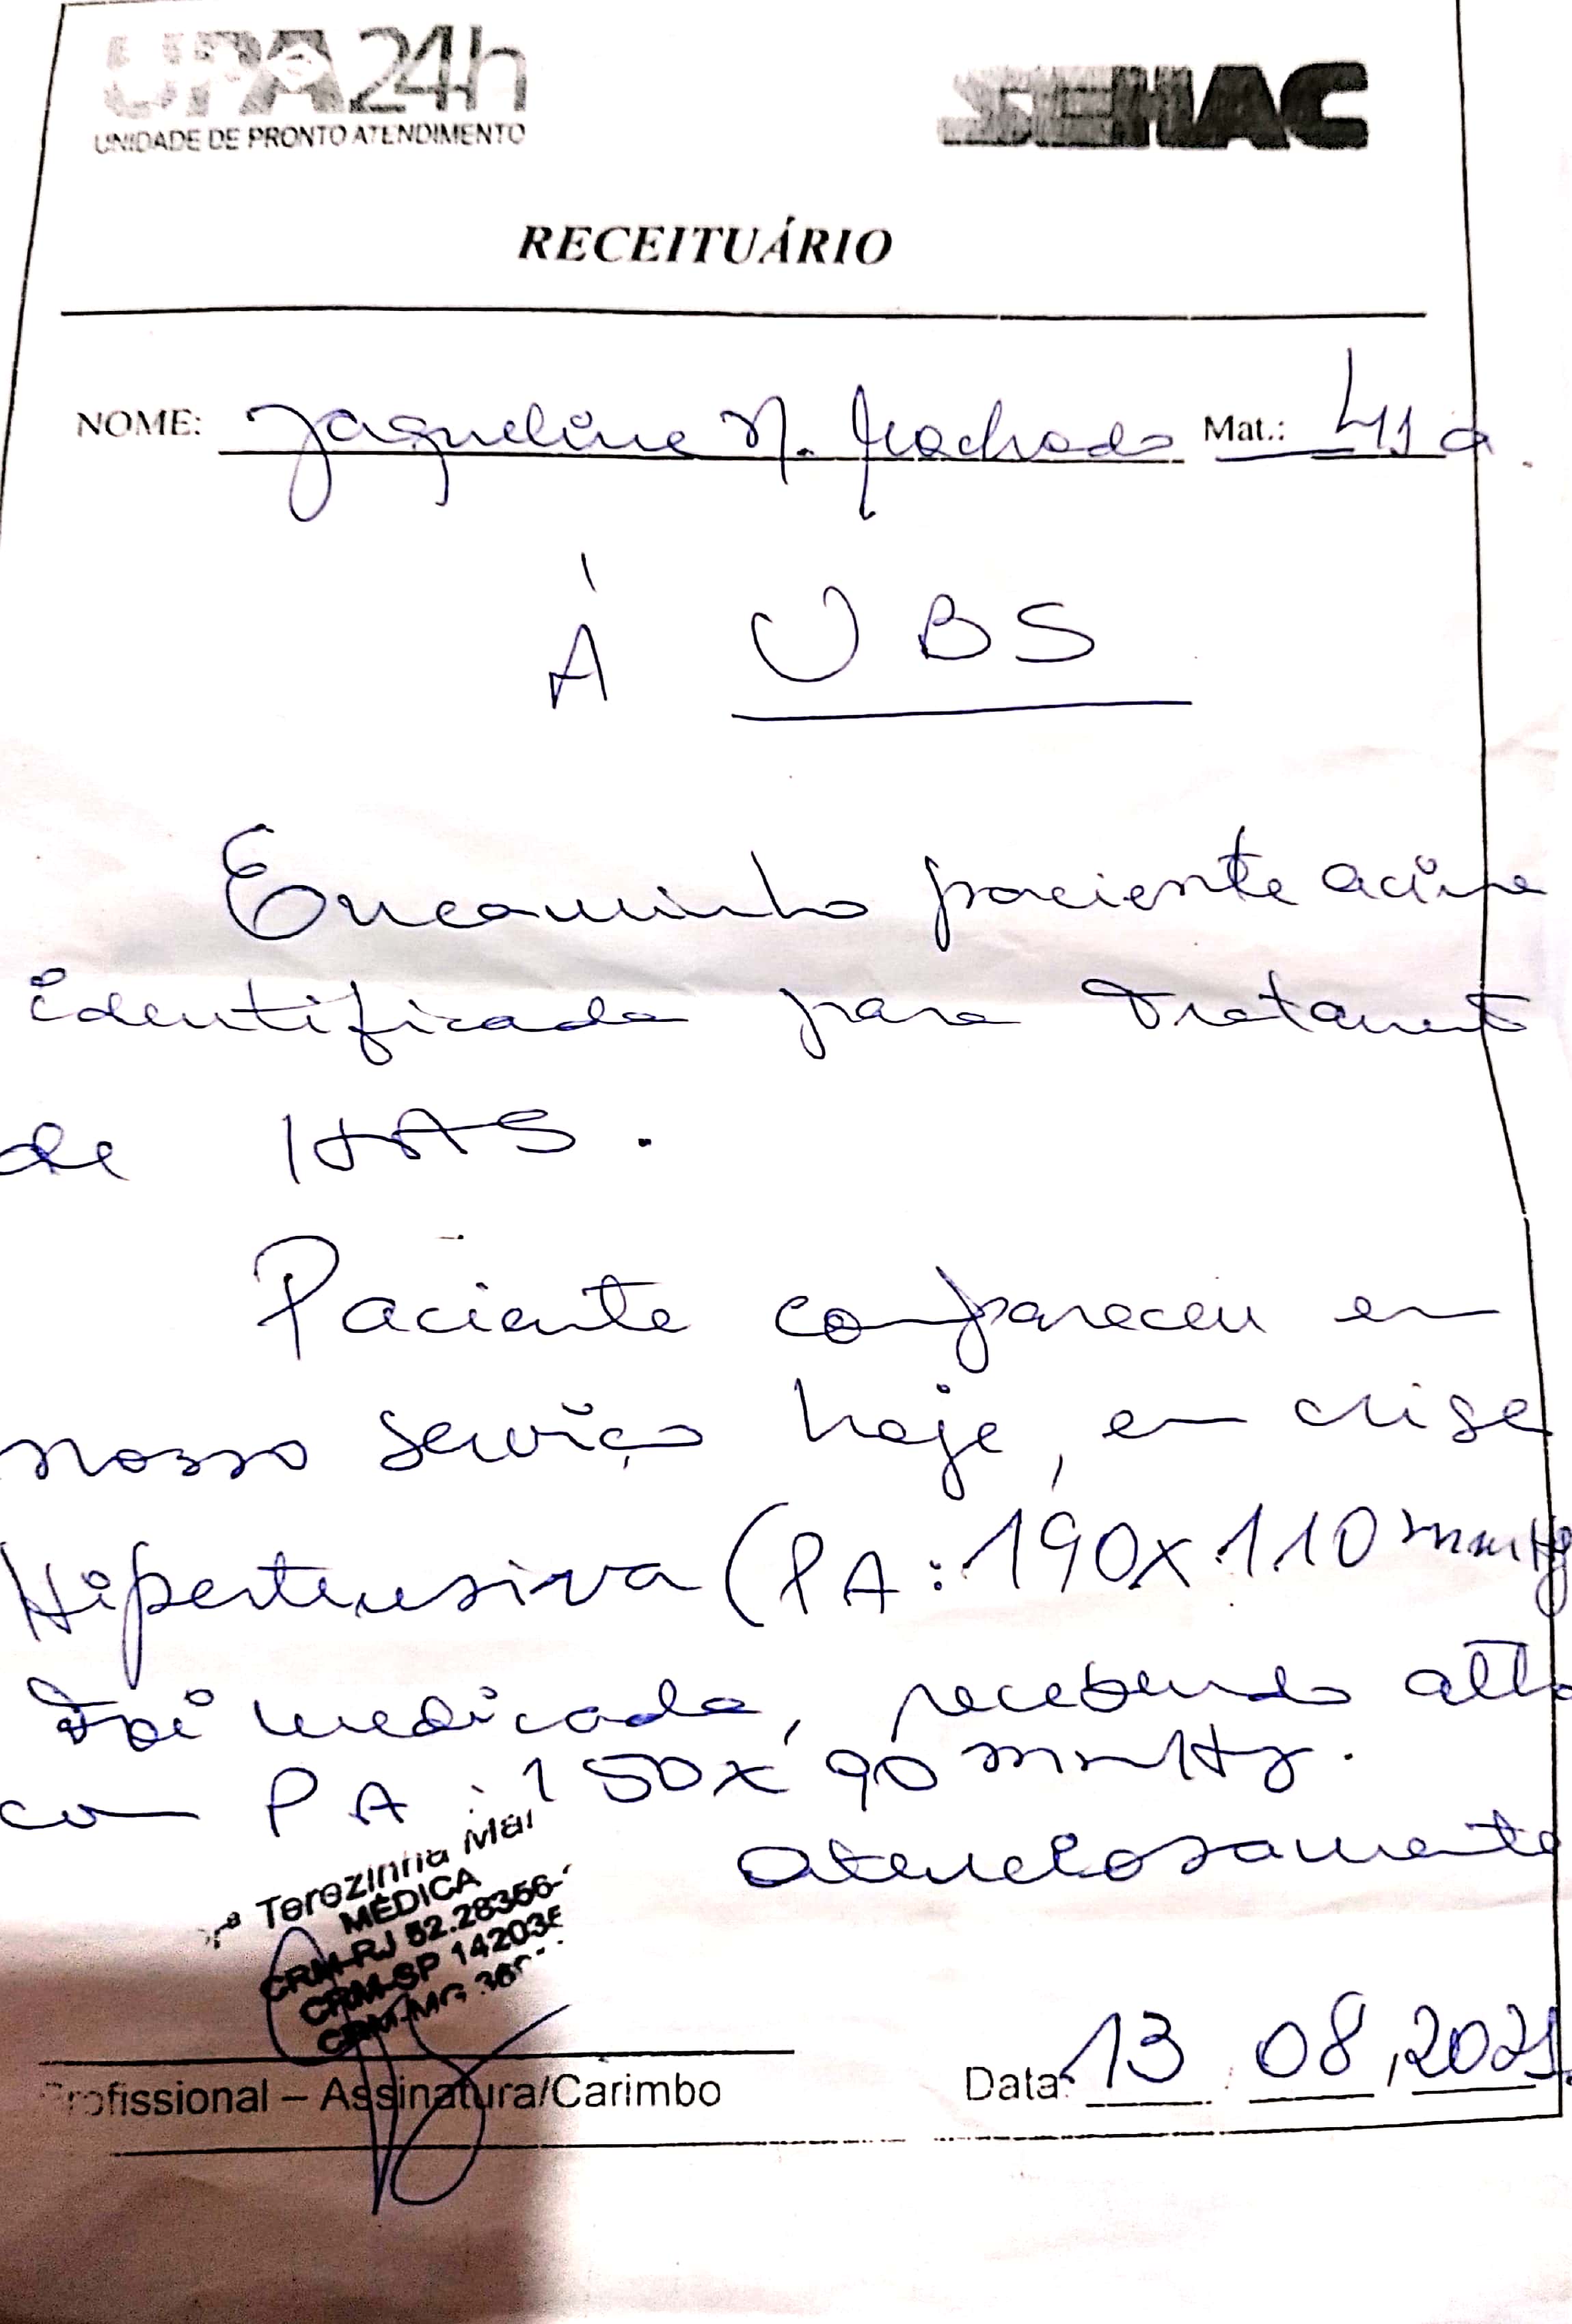 UPA24h
UNIDADE DE PRONTO ATENDIMENTO
SEHAC
RECEITUÁRIO
NOME: Jaqueline M. Machado Mat.: 41 a.
À UBS
Encaminho paciente acima
identificada para tratamento
de HAS.
Paciente compareceu em
nosso serviço hoje, em crise
Hipertensiva (PA: 190x110 mmHg
Foi medicada, recebendo alta
com PA: 150x90 mmHg.
Atenciosamente
Terezinha
MÉDICA
CRM-RJ 52.28356-
CRM-SP 14203
CRM-MG 36
Profissional – Assinatura/Carimbo
Data: 13 08, 2021.